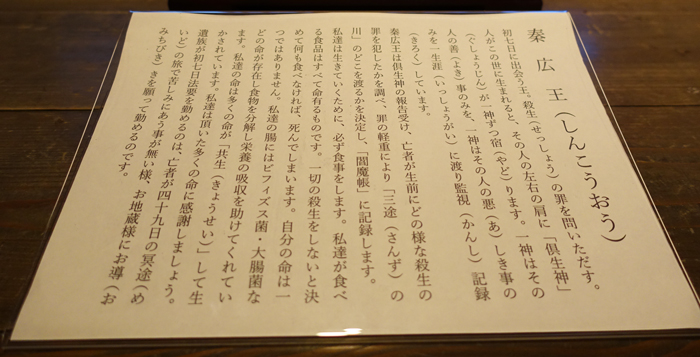 秦広王(しんこうおう)
初七日に出会う王。殺生(せっしょう)の罪を問いただす。
人がこの世に生まれると、その人の左右の肩に「倶生神」
(ぐしょうじん)が一神ずつ宿(やど)ります。一神はその
人の善(よき)事のみを、一神はその人の悪(あ)しき事の
みを一生涯(いっしょうがい)に渡り監視(かんし)記録
(きろく)しています。
秦広王は倶生神の報告受け、亡者が生前にどの様な殺生の
罪を犯したかを調べ、罪の軽重により「三途(さんず)の
川」のどこを渡るかを決定し、「閻魔帳」に記録します。
私達は生きていくために、必ず食事をします。私達が食べ
る食品はすべて命有るものです。一切の殺生をしないと決
めて何も食べなければ、死んでしまいます。自分の命は一
つではありません。私達の腸にはビフィズス菌・大腸菌な
どの命が存在し食物を分解し栄養の吸収を助けてくれてい
ます。私達の命は多くの命が「共生(きょうせい)」して生
かされています。私達は頂いた多くの命に感謝しましょう。
遺族が初七日法要を勤めるのは、亡者が四十九日の冥途(め
いど)の旅で苦しみにあう事が無い様、お地蔵様にお導(お
みちびき)きを願って勤めるのです。